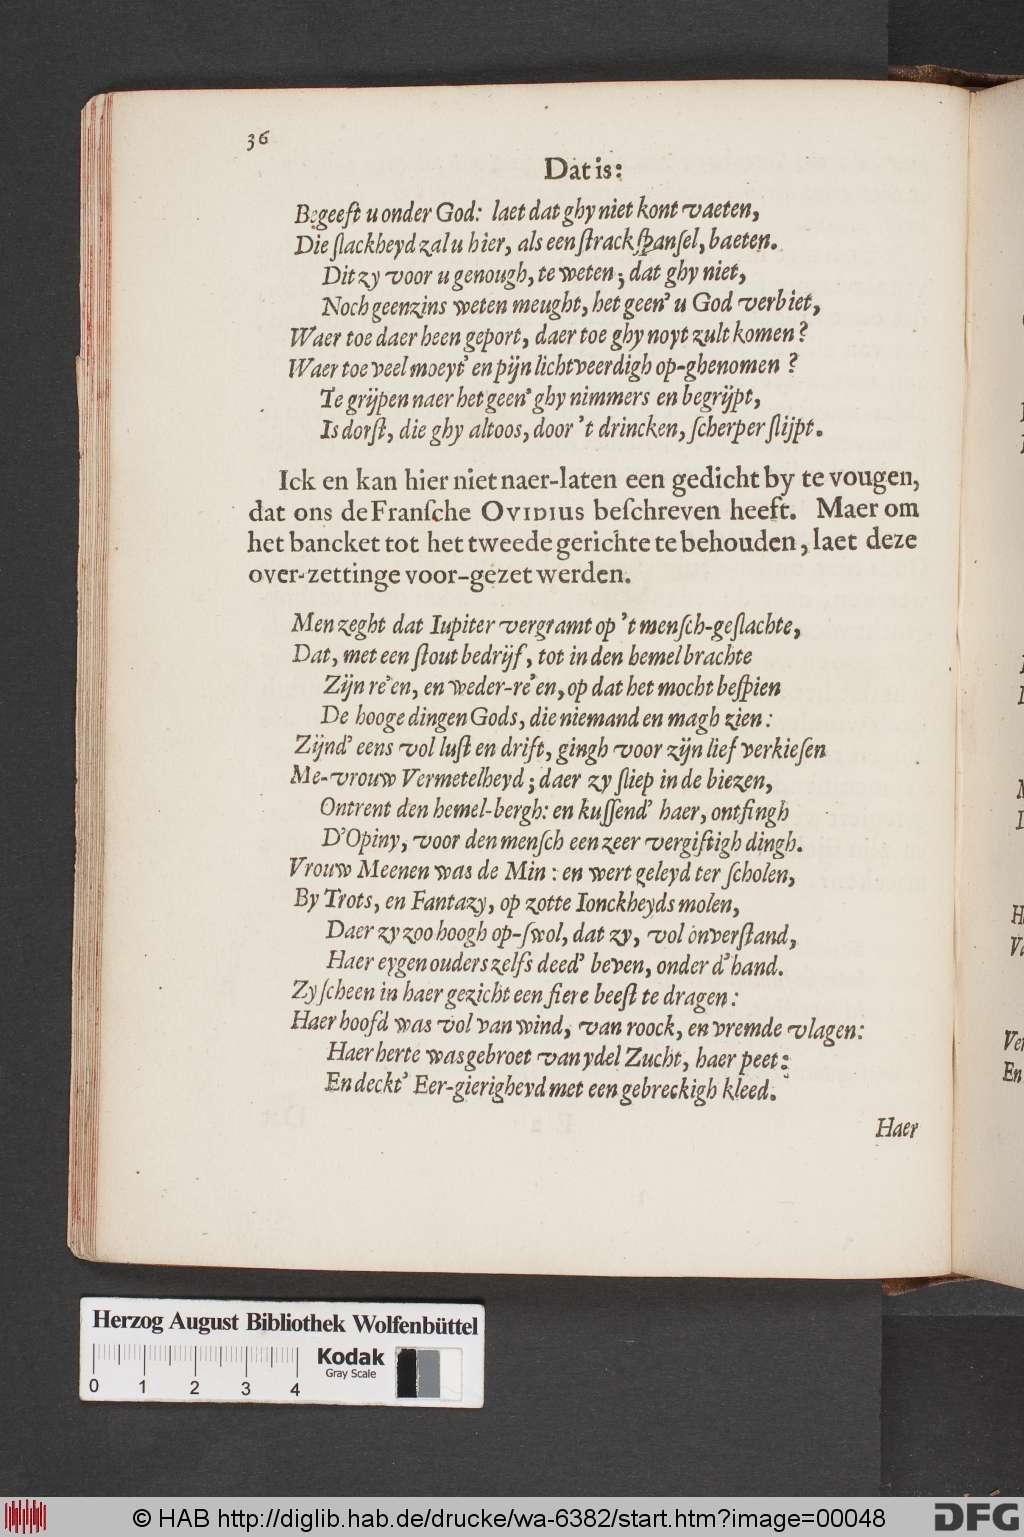 36
Dat is:
Begeeft u onder God: laet dat ghy niet kont vaeten,
Die ſlackheyd zal u hier, als een ſtrack ſpanſel, baeten.
Dit zy voor u genough, te weten; dat ghy niet,
Noch geenzins weten meught, het geen' u God verbiet,
Waer toe daer heen geport, daer toe ghy noyt zult komen?
Waer toe veel moeyt' en pijn lichtveerdigh op-ghenomen?
Te grijpen naer het geen' ghy nimmers en begrijpt,
Is dorſt, die ghy altoos, door 't drincken, ſcherper ſlijpt.
Ick en kan hier niet naer-laten een gedicht by te vougen,
dat ons de Franſche OVIDIUS beſchreven heeft. Maer om
het bancket tot het tweede gerichte te behouden, laet deze
over-zettinge voor-gezet werden.
Men zeght dat Iupiter vergramt op 't menſch-geſlachte,
Dat, met een ſtout bedrijf, tot in den hemel brachte
Zijn re'en, en weder-re'en, op dat het mocht beſpien
De hooge dingen Gods, die niemand en magh zien:
Zijnd' eens vol luſt en drift, gingh voor zijn lief verkieſen
Me-vrouw Vermetelheyd; daer zy ſliep in de biezen,
Ontrent den hemel-bergh: en kuſſend' haer, ontfingh
D'Opiny, voor den menſch een zeer vergiftigh dingh.
Vrouw Meenen was de Min: en wert geleyd ter ſcholen,
By Trots, en Fantazy, op zotte Ionckheyds molen,
Daer zy zoo hoogh op-ſwol, dat zy, vol onverſtand,
Haer eygen ouders zelfs deed' beven, onder d'hand.
Zy ſcheen in haer gezicht een fiere beeſt te dragen:
Haer hoofd was vol van wind, van roock, en vremde vlagen:
Haer herte was gebroet van ydel Zucht, haer peet:
En deckt' Eer-gierigheyd met een gebreckigh kleed.
Haer
Herzog August Bibliothek Wolfenbüttel
Kodak
Gray Scale
0 1 2 3 4
© HAB http://diglib.hab.de/drucke/wa-6382/start.htm?image=00048
DFG